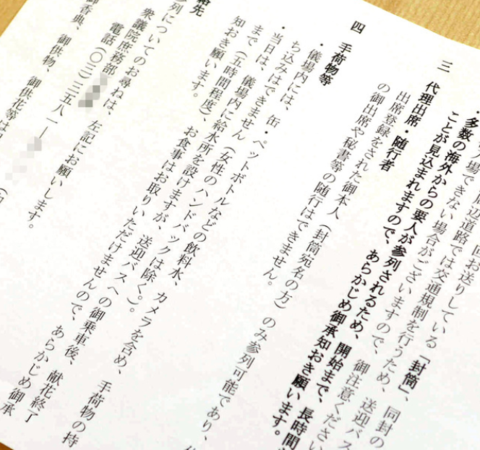 周辺道路では交通規制を行うため、送迎バス
できない場合がございますので、御注意ください
・多数の海外からの要人が参列されるため、開始まで、長時間
ことが見込まれますので、あらかじめ御承知おき願います。
三 代理出席・随行者
出席登録をされた御本人(封筒宛名の方)のみ参列可能であり、
の御出席や秘書等の随行はできません。
四 手荷物等
・儀場内には、缶・ペットボトルなどの飲料水、カメラを含め、手荷物の持
ち込みはできません(女性のハンドバックは除く。)。
・当日は、儀場内に給水所を設けますが、送迎バスへの御乗車後、献花終了
まで(五時間程度)、お食事はお取りいただけませんので、あらかじめ御承
知おき願います。
絡先
列についてのお尋ねは、左記にお願いします。
衆議院庶務部
電話(〇三)三五八一―
御香典、御供物、御供花等は